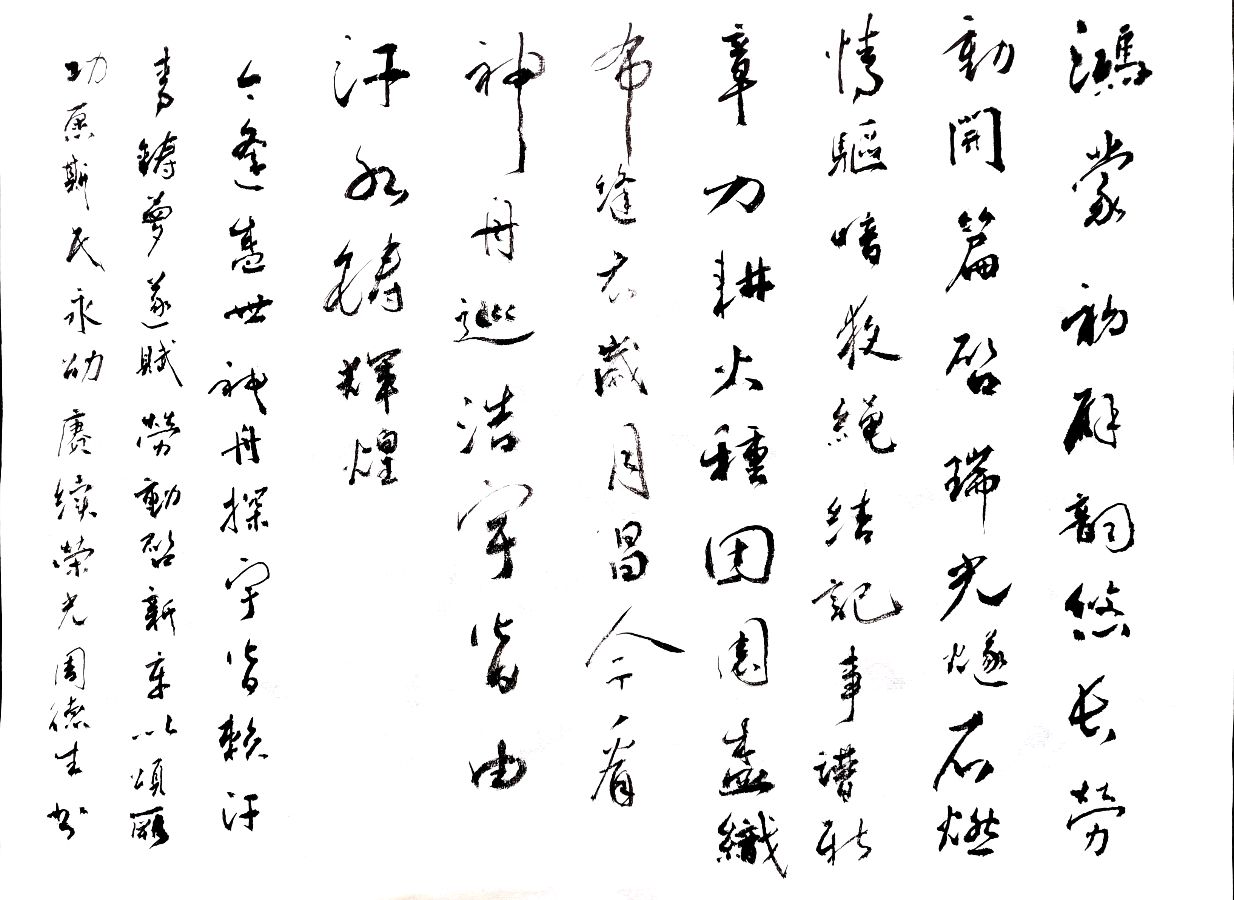 鴻蒙初辟韻悠長勞
動開篇啓瑞光燧石燃
情驅暗夜繩結記事譜新
章刀耕火種田園盛織
布縫衣歲月昌今看
神舟巡浩宇皆由
汗水鑄輝煌
今逢盛世神舟探宇皆賴汗
青鑄夢遂賦勞動啓新章以頌厥
功愿斯民永劭賡續榮光周德生书